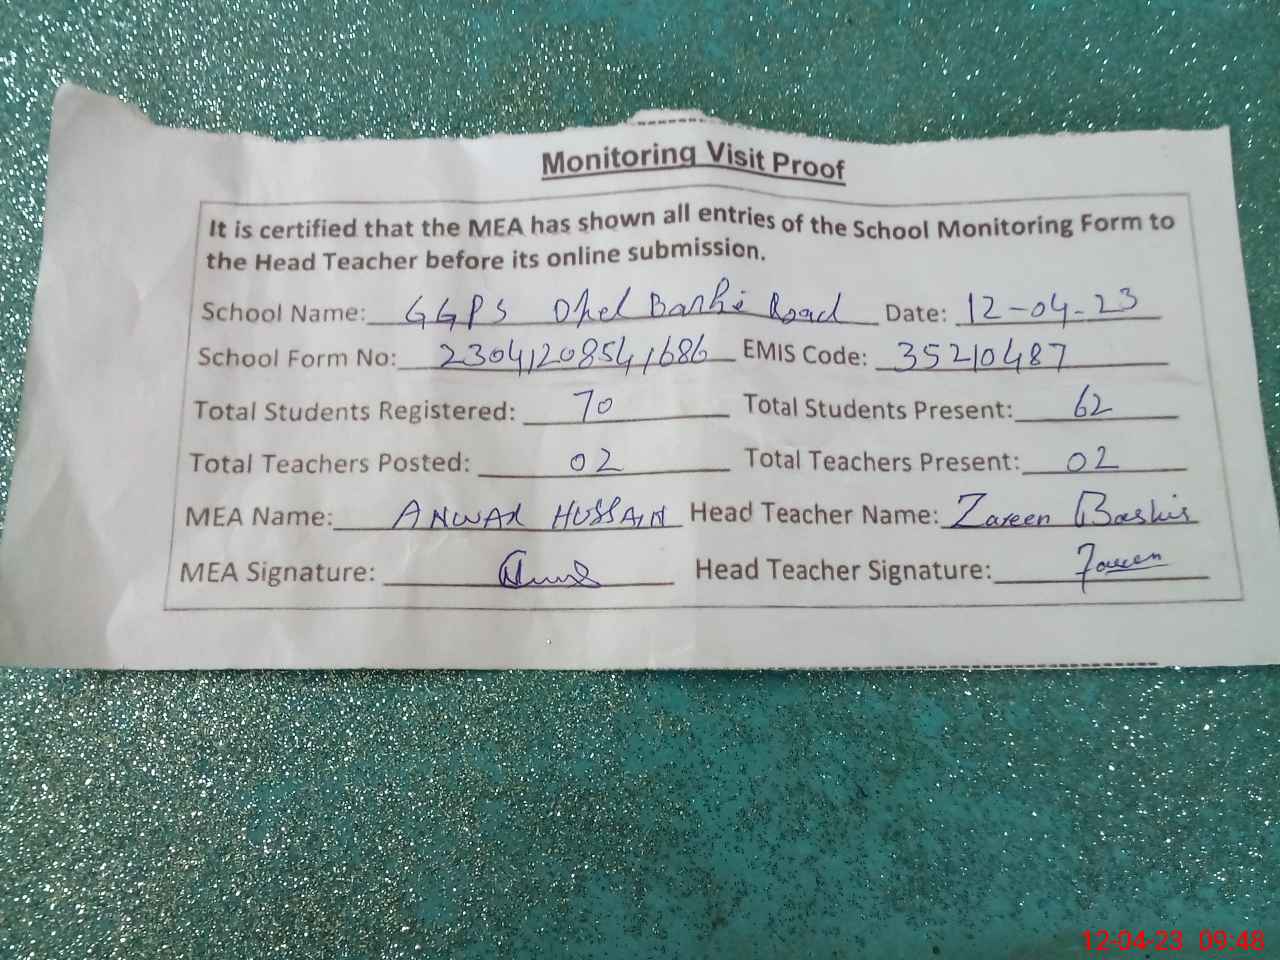 Monitoring Visit Proof
It is certified that the MEA has shown all entries of the School Monitoring Form to
the Head Teacher before its online submission.
School Name: GGPS Road Date: 12-04-23
School Form No: EMIS Code: 35210487
Total Students Registered: 70 Total Students Present: 62
Total Teachers Posted: 02 Total Teachers Present: 02
MEA Name: ANWAR HUSSAIN Head Teacher Name: Zareen
MEA Signature: Head Teacher Signature: Zareen
12-04-23 09:48